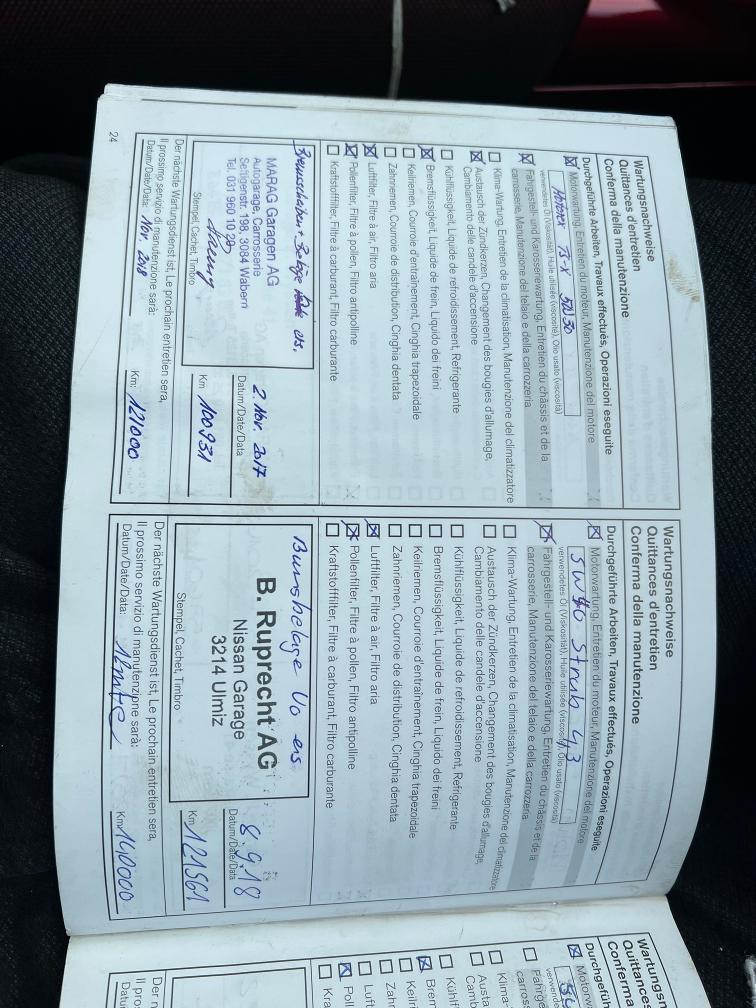 Wartungsnachweise
Quittances d'entretien
Conferma della manutenzione
Durchgeführte Arbeiten, Travaux effectués, Operazioni eseguite
Motorwartung, Entretien du moteur, Manutenzione del motore
5W30
verwendetes Öl (Viskosität), Huile utilisée (viscosité), Olio usato (viscosità)
Fahrgestell- und Karosseriewartung, Entretien du châssis et de la
carrosserie, Manutenzione del telaio e della carrozzeria
Klima-Wartung, Entretien de la climatisation, Manutenzione del climatizzatore
Austausch der Zündkerzen, Changement des bougies d'allumage,
Cambiamento delle candele d'accensione
Kühlflüssigkeit, Liquide de refroidissement, Refrigerante
Bremsflüssigkeit, Liquide de frein, Liquido dei freini
Keilriemen, Courroie d'entraînement, Cinghia trapezoidale
Zahnriemen, Courroie de distribution, Cinghia dentata
Luftfilter, Filtre à air, Filtro aria
Pollenfilter, Filtre à pollen, Filtro antipolline
Kraftstofffilter, Filtre à carburant, Filtro carburante
Bremsscheiben + Beläge ers.
MARAG Garagen AG
Autogarage, Carrosserie
Seftigenstr. 198, 3084 Wabern
Tel. 031 960 10 20
Stempel, Cachet, Timbro
2. Nov. 2017
Datum/Date/Data
Km 100931
Der nächste Wartungsdienst ist, Le prochain entretien sera,
Il prossimo servizio di manutenzione sarà:
Datum/Date/Data: Nov. 2018
Km: 121000
24
Wartungsnachweise
Quittances d'entretien
Conferma della manutenzione
Durchgeführte Arbeiten, Travaux effectués, Operazioni eseguite
Motorwartung, Entretien du moteur, Manutenzione del motore
5W40 Strub 4,3
verwendetes Öl (Viskosität), Huile utilisée (viscosité), Olio usato (viscosità)
Fahrgestell- und Karosseriewartung, Entretien du châssis et de la
carrosserie, Manutenzione del telaio e della carrozzeria
Klima-Wartung, Entretien de la climatisation, Manutenzione del climatizzatore
Austausch der Zündkerzen, Changement des bougies d'allumage,
Cambiamento delle candele d'accensione
Kühlflüssigkeit, Liquide de refroidissement, Refrigerante
Bremsflüssigkeit, Liquide de frein, Liquido dei freini
Keilriemen, Courroie d'entraînement, Cinghia trapezoidale
Zahnriemen, Courroie de distribution, Cinghia dentata
Luftfilter, Filtre à air, Filtro aria
Pollenfilter, Filtre à pollen, Filtro antipolline
Kraftstofffilter, Filtre à carburant, Filtro carburante
Bremsbeläge Vo ers
B. Ruprecht AG
Nissan Garage
3214 Ulmiz
Stempel, Cachet, Timbro
8.9.18
Datum/Date/Data
Km 121561
Der nächste Wartungsdienst ist, Le prochain entretien sera,
Il prossimo servizio di manutenzione sarà:
Datum/Date/Data:
Km: 140000
Wartungsn
Quittances
Conferma
Durchgeführ
Motorw
verwende
Fahrge
carross
Klima-
Austa
Camb
Kühlf
Brem
Keilri
Zahn
Luft
Poll
Kra
Der n
Il pro
Datum